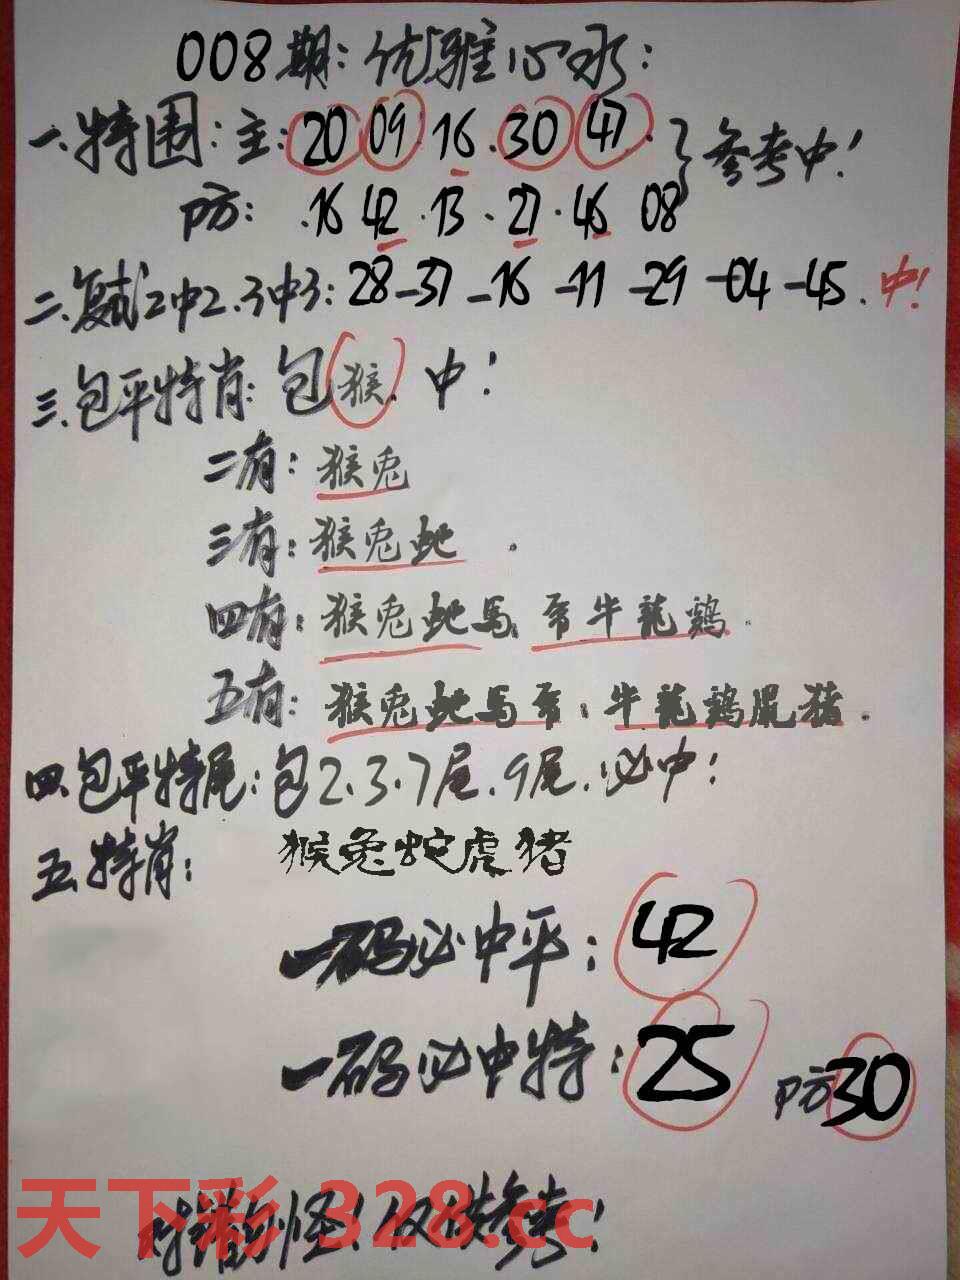 008期:优雅心水:
一.特围:主:20 09·16·30·47·}参考中!
防:·16 42·13·27·46 08
二.复式2中2.3中3:28-37-16-11-29-04-45.中!
三.包平特肖:包猴.中!
二有:猴兔
三有:猴兔蛇.
四有:猴兔蛇马.虎牛龍鷄.
五有:猴兔蛇马虎:牛龍鷄鼠猪.
四.包平特尾:包2.3.7尾.9尾.必中!
五.特肖:猴兔蛇虎猪
一码必中平:42
一码必中特:25 防30
对错别怪!仅供参考!
天下彩 328.cc